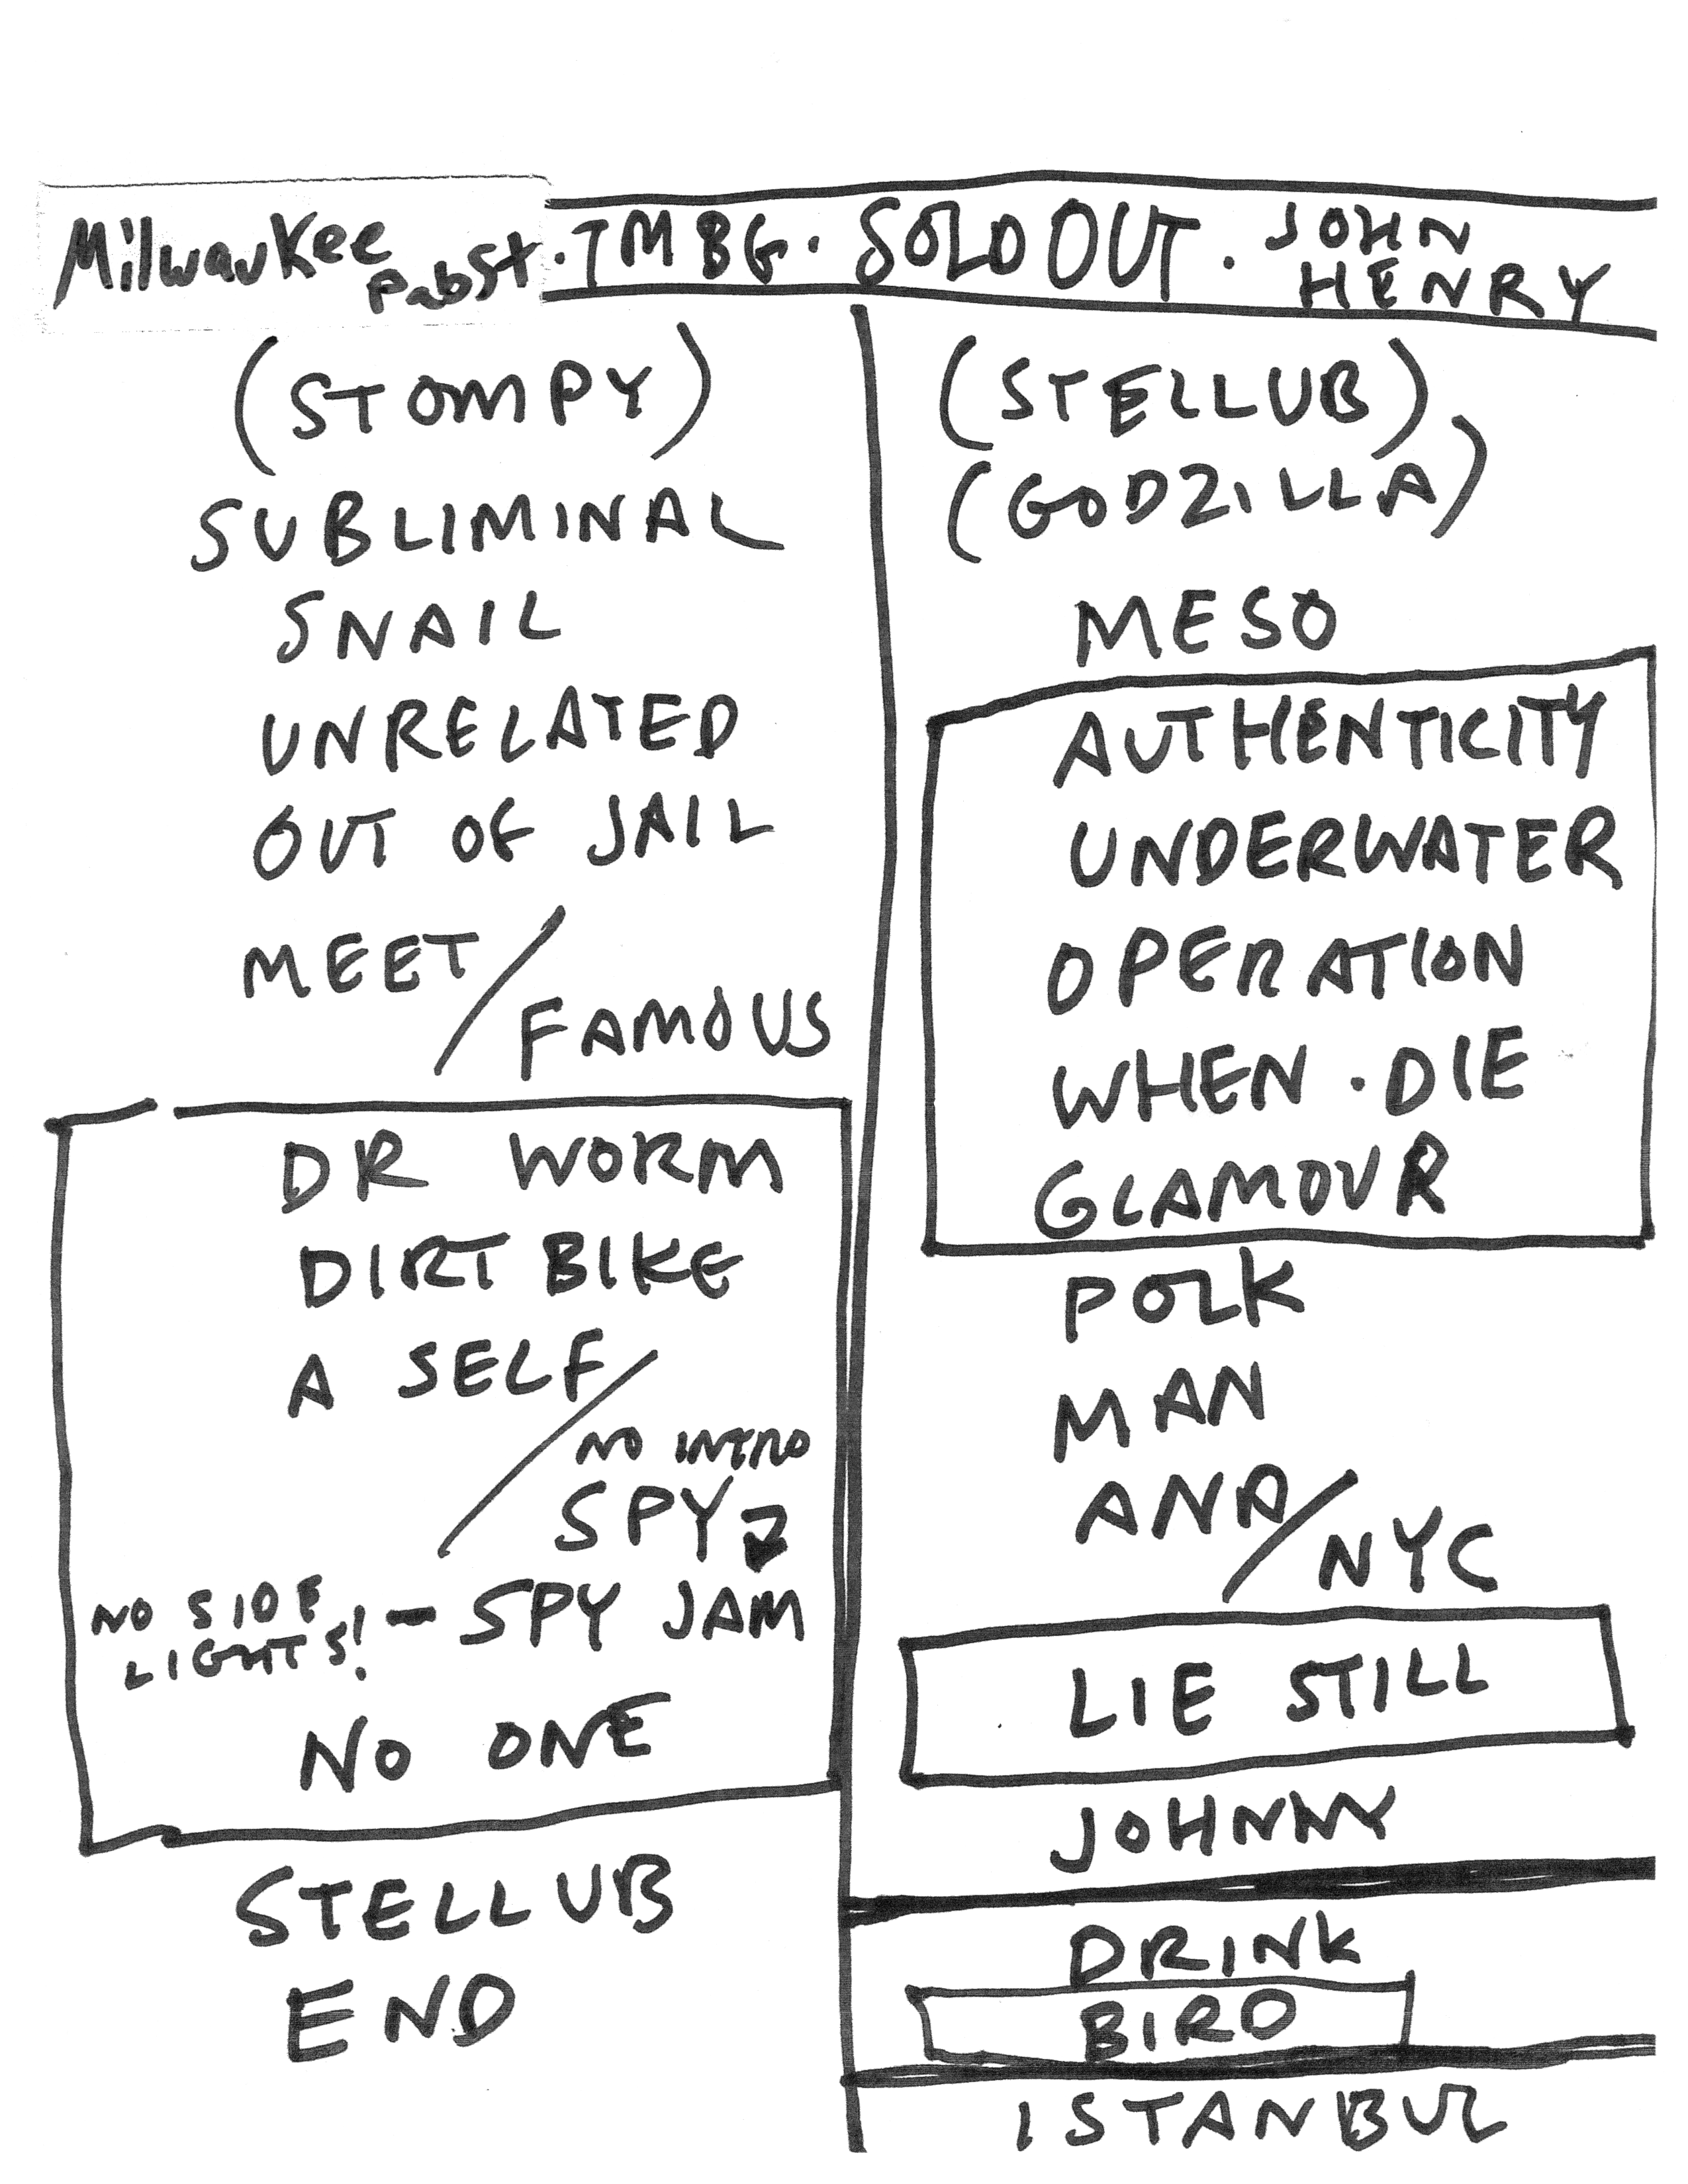 Milwaukee Pabst · TMBG · SOLD OUT · JOHN HENRY
(STOMPY)
SUBLIMINAL
SNAIL
UNRELATED
OUT OF JAIL
MEET /
FAMOUS
DR WORM
DIRT BIKE
A SELF /
NO INTRO
SPY
NO SIDE LIGHTS! — SPY JAM
NO ONE
STELLUB
END
(STELLUB)
(GODZILLA)
MESO
AUTHENTICITY
UNDERWATER
OPERATION
WHEN · DIE
GLAMOUR
POLK
MAN
ANA /
NYC
LIE STILL
JOHNNY
DRINK
BIRD
ISTANBUL